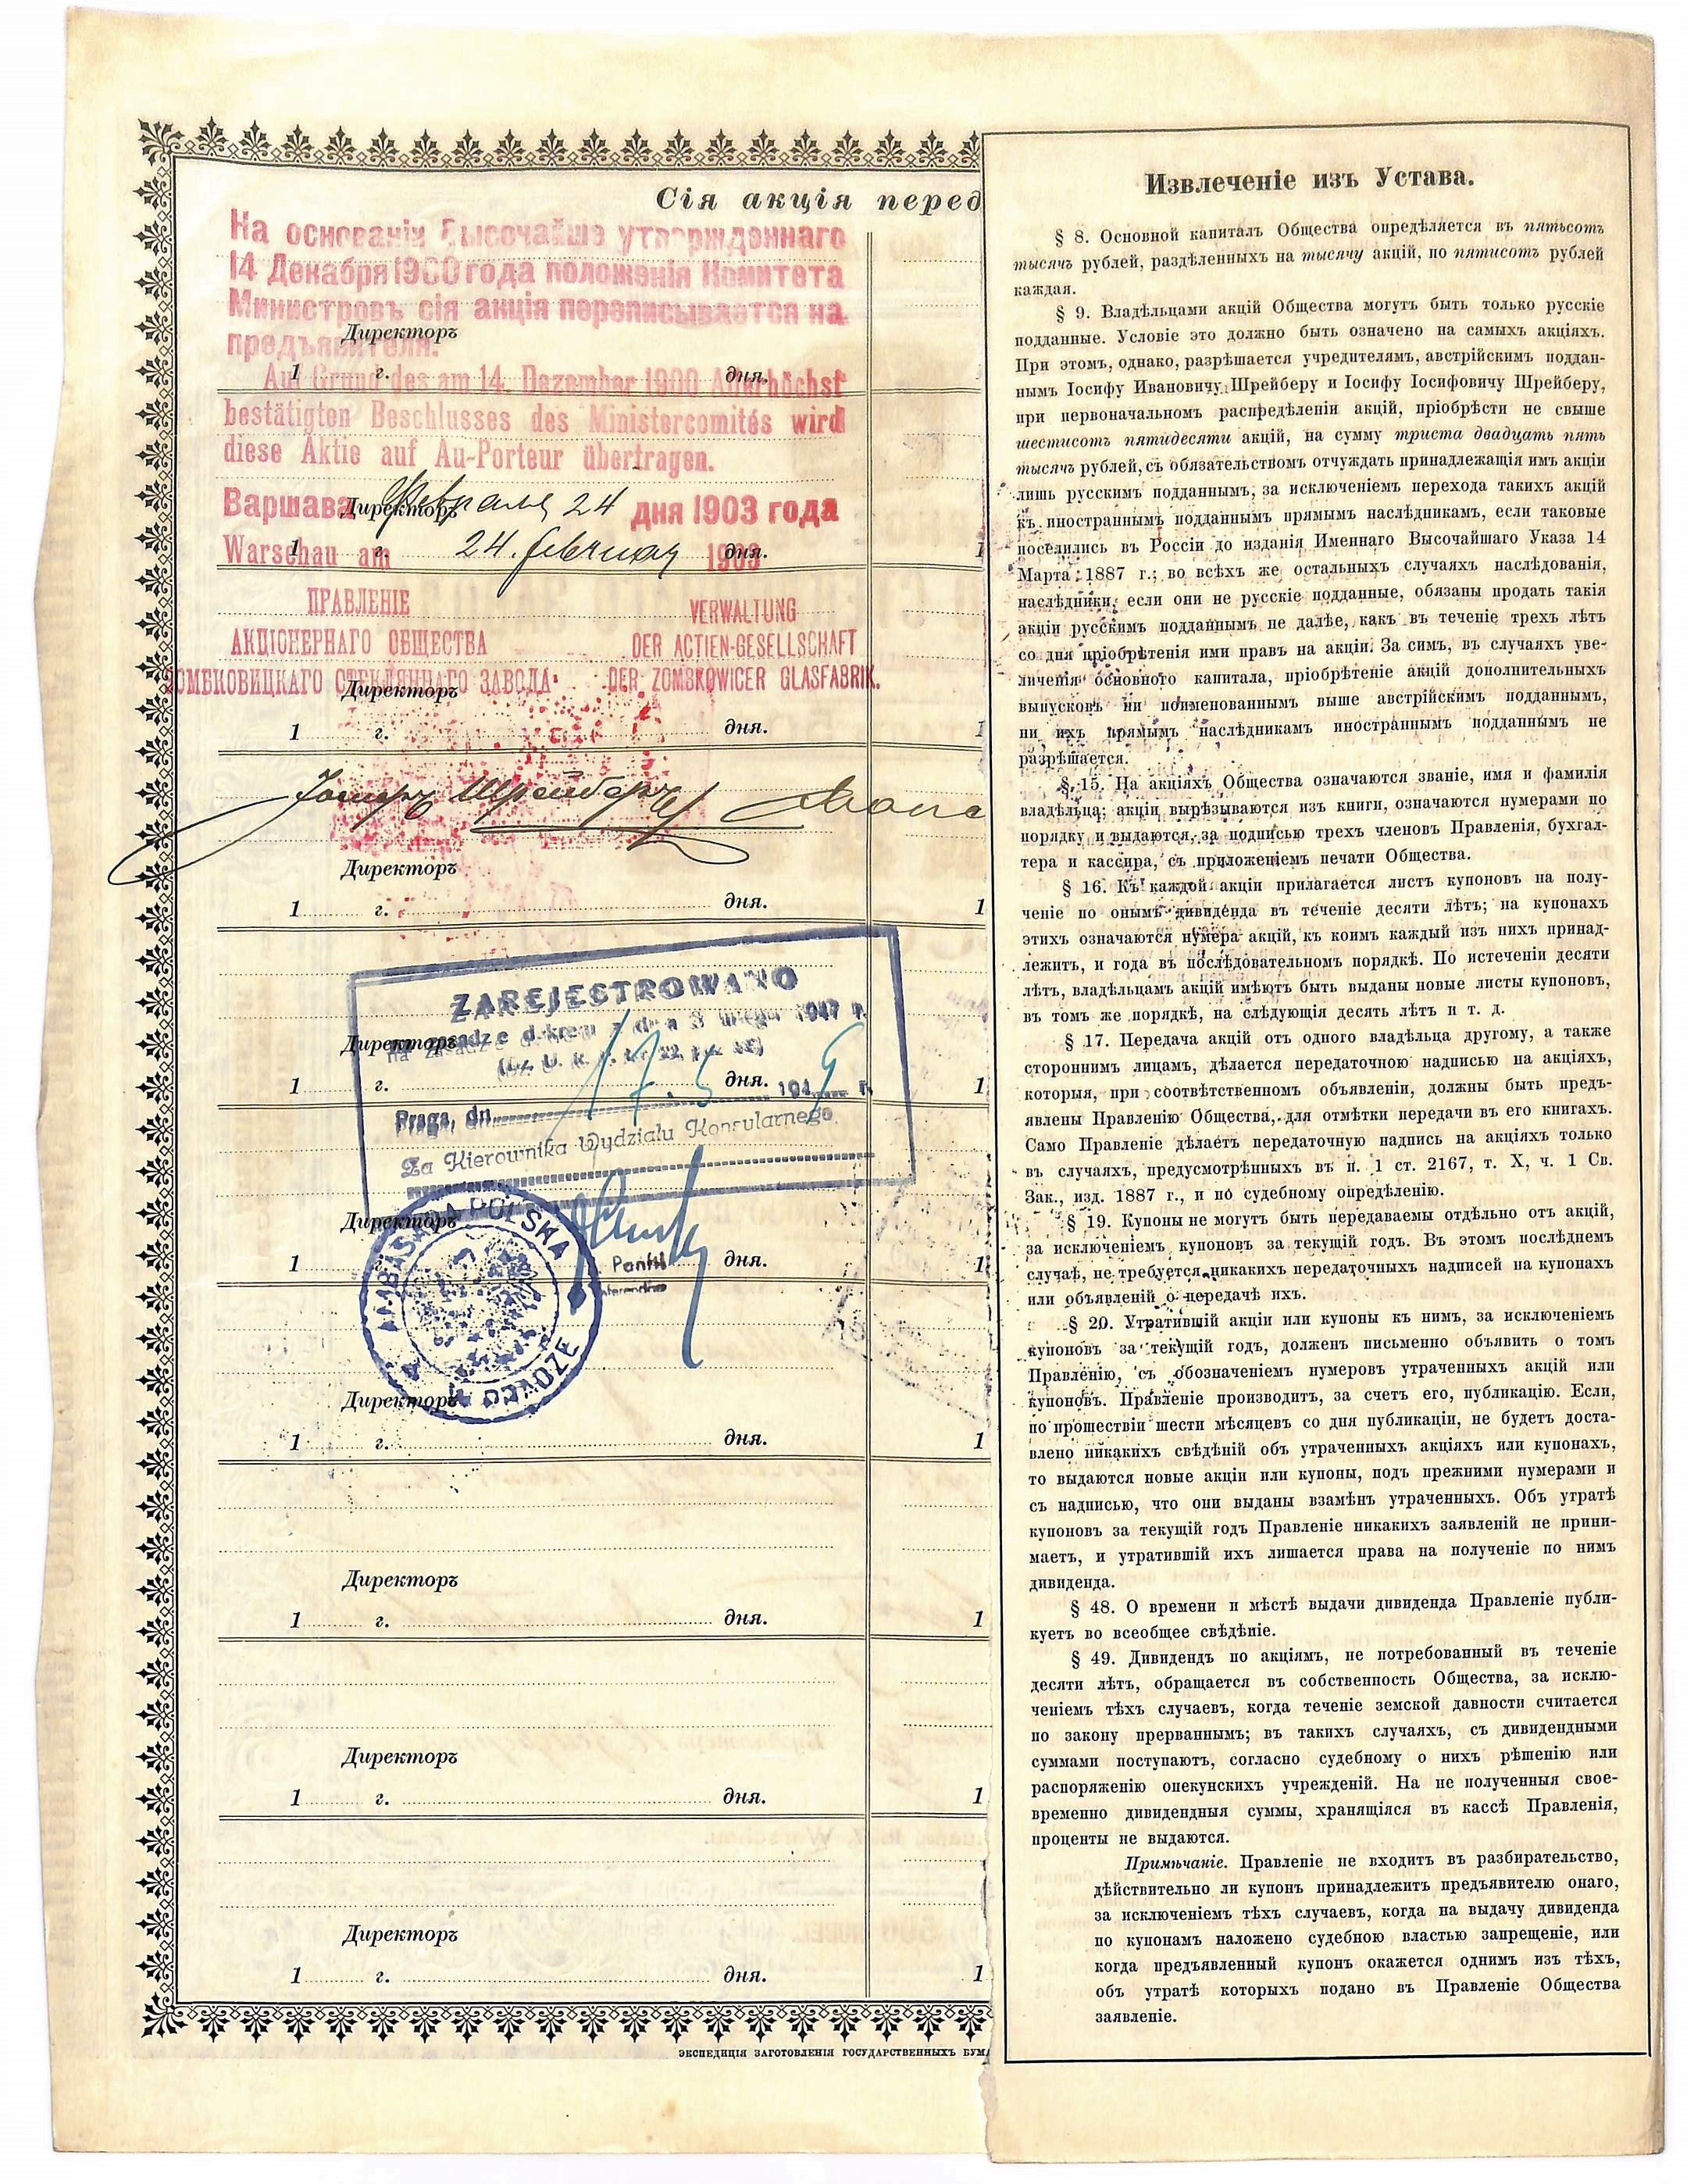 Сія акція перед
На основаніи Высочайше утвержденнаго
14 Декабря 1900 года положенія Комитета
Министровъ сія акція переписывается на
предъявителя.
Директоръ
1 г. дня.
Auf Grund des am 14. Dezember 1900 Allerhöchst
bestätigten Beschlusses des Ministercomités wird
diese Aktie auf Au-Porteur übertragen.
Варшава Февраля 24 дня 1903 года
Директоръ
Warschau am 24. februar 1903
1 г. дня. 1
ПРАВЛЕНІЕ
АКЦІОНЕРНАГО ОБЩЕСТВА
ОМБКОВИЦКАГО СТЕКЛЯННАГО ЗАВОДА
VERWALTUNG
DER ACTIEN-GESELLSCHAFT
DER ZOMBKOWICER GLASFABRIK.
Директоръ
1 г. дня. 1
Іосифъ Шрейберъ
Директоръ
1 г. дня. 1
ZAREJESTROWANO
na zasadzie dekretu z dnia 3 lutego 1947 r.
Директоръ
1 г. дня. 1
17.5 1949 r.
Praga, dn.
Za Kierownika Wydziału Konsularnego
AMBASADA POLSKA W PRADZE
Директоръ
1 г. дня. 1
Директоръ
1 г. дня. 1
Директоръ
1 г. дня. 1
Директоръ
1 г. дня. 1
Директоръ
1 г. дня. 1
ЭКСПЕДИЦІЯ ЗАГОТОВЛЕНІЯ ГОСУДАРСТВЕННЫХЪ БУМА
Извлеченіе изъ Устава.
§ 8. Основной капиталъ Общества опредѣляется въ пятьсотъ
тысячъ рублей, раздѣленныхъ на тысячу акцій, по пятисотъ рублей
каждая.
§ 9. Владѣльцами акцій Общества могутъ быть только русскіе
подданные. Условіе это должно быть означено на самыхъ акціяхъ.
При этомъ, однако, разрѣшается учредителямъ, австрійскимъ поддан-
нымъ Іосифу Ивановичу Шрейберу и Іосифу Іосифовичу Шрейберу,
при первоначальномъ распредѣленіи акцій, пріобрѣсти не свыше
шестисотъ пятидесяти акцій, на сумму триста двадцать пять
тысячъ рублей, съ обязательствомъ отчуждать принадлежащія имъ акціи
лишь русскимъ подданнымъ, за исключеніемъ перехода такихъ акцій
къ иностраннымъ подданнымъ прямымъ наслѣдникамъ, если таковые
поселились въ Россіи до изданія Именнаго Высочайшаго Указа 14
Марта 1887 г.; во всѣхъ же остальныхъ случаяхъ наслѣдованія,
наслѣдники, если они не русскіе подданные, обязаны продать такія
акціи русскимъ подданнымъ не далѣе, какъ въ теченіе трехъ лѣтъ
со дня пріобрѣтенія ими правъ на акціи. За симъ, въ случаяхъ уве-
личенія основного капитала, пріобрѣтеніе акцій дополнительныхъ
выпусковъ ни поименованнымъ выше австрійскимъ подданнымъ,
ни ихъ прямымъ наслѣдникамъ иностраннымъ подданнымъ не
разрѣшается.
§ 15. На акціяхъ Общества означаются званіе, имя и фамилія
владѣльца; акціи вырѣзываются изъ книги, означаются нумерами по
порядку и выдаются, за подписью трехъ членовъ Правленія, бухгал-
тера и кассира, съ приложеніемъ печати Общества.
§ 16. Къ каждой акціи прилагается листъ купоновъ на полу-
ченіе по онымъ дивиденда въ теченіе десяти лѣтъ; на купонахъ
этихъ означаются нумера акцій, къ коимъ каждый изъ нихъ принад-
лежитъ, и года въ послѣдовательномъ порядкѣ. По истеченіи десяти
лѣтъ, владѣльцамъ акцій имѣютъ быть выданы новые листы купоновъ,
въ томъ же порядкѣ, на слѣдующія десять лѣтъ и т. д.
§ 17. Передача акцій отъ одного владѣльца другому, а также
стороннимъ лицамъ, дѣлается передаточною надписью на акціяхъ,
которыя, при соотвѣтственномъ объявленіи, должны быть предъ-
явлены Правленію Общества, для отмѣтки передачи въ его книгахъ.
Само Правленіе дѣлаетъ передаточную надпись на акціяхъ только
въ случаяхъ, предусмотрѣнныхъ въ п. 1 ст. 2167, т. X, ч. 1 Св.
Зак., изд. 1887 г., и по судебному опредѣленію.
§ 19. Купоны не могутъ быть передаваемы отдѣльно отъ акцій,
за исключеніемъ купоновъ за текущій годъ. Въ этомъ послѣднемъ
случаѣ, не требуется никакихъ передаточныхъ надписей на купонахъ
или объявленій о передачѣ ихъ.
§ 20. Утратившій акціи или купоны къ нимъ, за исключеніемъ
купоновъ за текущій годъ, долженъ письменно объявить о томъ
Правленію, съ обозначеніемъ нумеровъ утраченныхъ акцій или
купоновъ. Правленіе производитъ, за счетъ его, публикацію. Если,
по прошествіи шести мѣсяцевъ со дня публикаціи, не будетъ доста-
влено никакихъ свѣдѣній объ утраченныхъ акціяхъ или купонахъ,
то выдаются новые акціи или купоны, подъ прежними нумерами и
съ надписью, что они выданы взамѣнъ утраченныхъ. Объ утратѣ
купоновъ за текущій годъ Правленіе никакихъ заявленій не прини-
маетъ, и утратившій ихъ лишается права на полученіе по нимъ
дивиденда.
§ 48. О времени и мѣстѣ выдачи дивиденда Правленіе публи-
куетъ во всеобщее свѣдѣніе.
§ 49. Дивидендъ по акціямъ, не потребованный въ теченіе
десяти лѣтъ, обращается въ собственность Общества, за исклю-
ченіемъ тѣхъ случаевъ, когда теченіе земской давности считается
по закону прерваннымъ; въ такихъ случаяхъ, съ дивидендными
суммами поступаютъ, согласно судебному о нихъ рѣшенію или
распоряженію опекунскихъ учрежденій. На не полученныя свое-
временно дивидендныя суммы, хранящіяся въ кассѣ Правленія,
проценты не выдаются.
Примѣчаніе. Правленіе не входитъ въ разбирательство,
дѣйствительно ли купонъ принадлежитъ предъявителю онаго,
за исключеніемъ тѣхъ случаевъ, когда на выдачу дивиденда
по купонамъ наложено судебною властью запрещеніе, или
когда предъявленный купонъ окажется однимъ изъ тѣхъ,
объ утратѣ которыхъ подано въ Правленіе Общества
заявленіе.